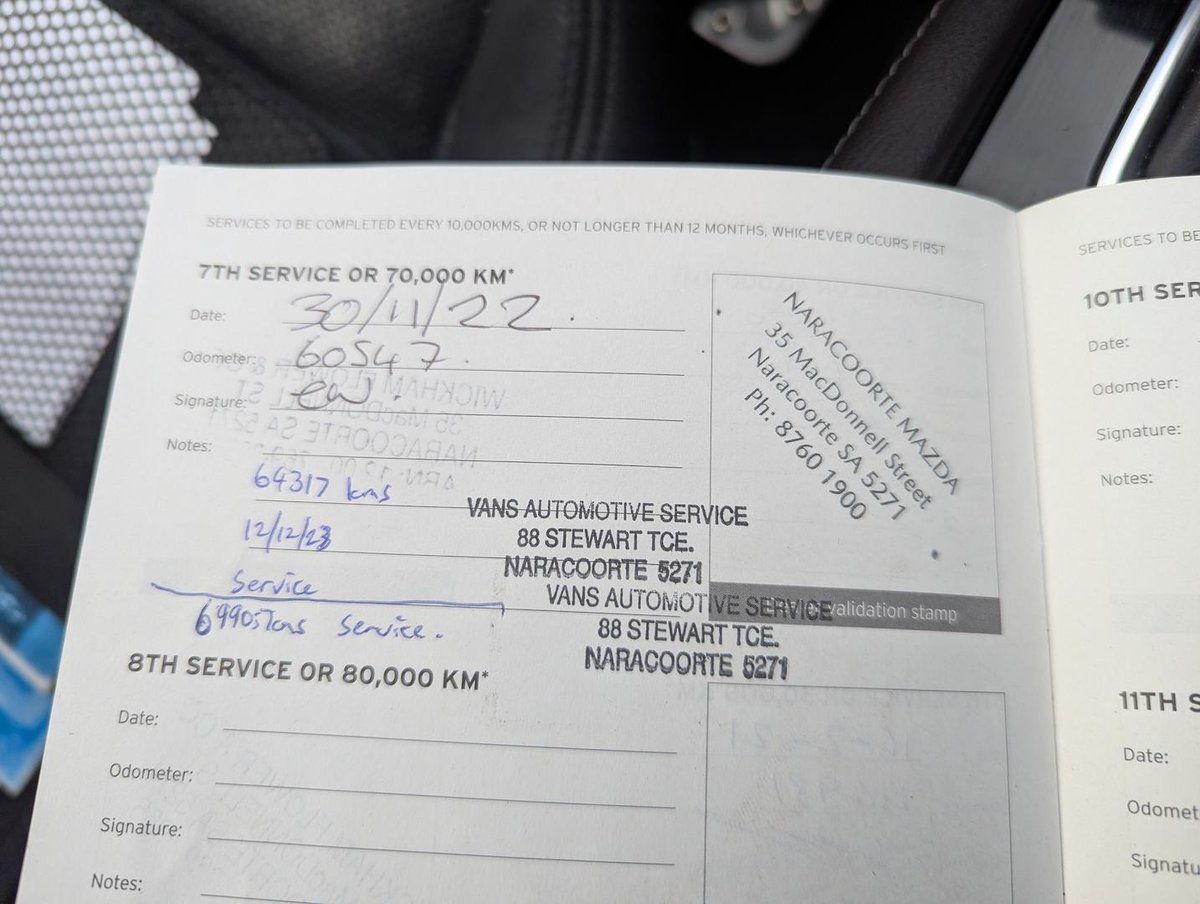 SERVICES TO BE COMPLETED EVERY 10,000KMS, OR NOT LONGER THAN 12 MONTHS, WHICHEVER OCCURS FIRST
7TH SERVICE OR 70,000 KM*
Date: 30/11/22
Odometer: 60547
Signature:
Notes:
64317 kms
12/12/23
Service
Service.
NARACOORTE MAZDA
35 MacDonnell Street
Naracoorte SA 5271
Ph: 8760 1900
VANS AUTOMOTIVE SERVICE
88 STEWART TCE.
NARACOORTE 5271
VANS AUTOMOTIVE SERVICE
88 STEWART TCE.
NARACOORTE 5271
validation stamp
8TH SERVICE OR 80,000 KM*
Date:
Odometer:
Signature:
Notes:
SERVICES TO BE
10TH SER
Date:
Odometer:
Signature:
Notes:
11TH S
Date:
Odomet
Signatu